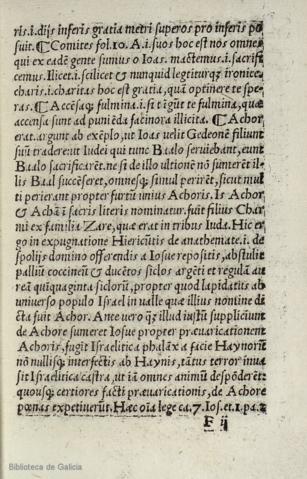 ris.i.dijs inferis gratia metri superos pro inferis po
suit. ¶ Comites fol.10. A.i.suos hoc est nos omnes
qui ex eadē gente sumus o Ioas. mactemus.i.sacrifi
cemus. Ilicet.i.scilicet & nunquid legiturq́; ironice.
charis.i.charitas hoc est gratia, quā optinere te spe-
ras. ¶ Accēsaq́; fulmina.i.si tāgūt te fulmina, quæ
accensa sunt ad puniēda facinora illicita. ¶ Achor
erat.argunt ab exēplo, ut Ioas uelit Gedeonē filium
suū tradere: ut Iudei qui tunc Baalo seruiebant, eunt
Baalo sacrificarēt. ne si de illo ultionē nō sumerēt il-
lis Baal succēseret, omnesq́; simul perirēt, sicut mul
ti perierant propter furtū unius Achoris. Is Achor
& Achā ī sacris literis nominatur. fuit filius Char
mi ex familia Zare, quæ erat in tribus Iuda. Hic er
go in expugnatione Hiericūtis de anathemate.i. de
spolijs domino offerendis a Iosue repositis, abstulit
palliū coccineū & ducētos siclos argēti et regulā au
reā quīquaginta siclorū, propter quod lapidatus ab
uniuerso populo Israel in ualle quæ illius nomine di
cta fuit Achor. Ante uero q̄ illud iustū supplicium
de Achore sumeret Iosue propter præuaricationem
Achoris, fugit Israelitica phalāx a facie Haynorū
nō nullisq́; interfectis ab Haynis, tātus terror inua
sit Israelitica castra, ut iā omnes animū despōderēt:
quousq́; certiores facti præuaricationis, de Achore
pœnas expetiuerūt. Hæc oīa lege ca.7. Ios.et.1.pa.2
F ij
Biblioteca de Galicia